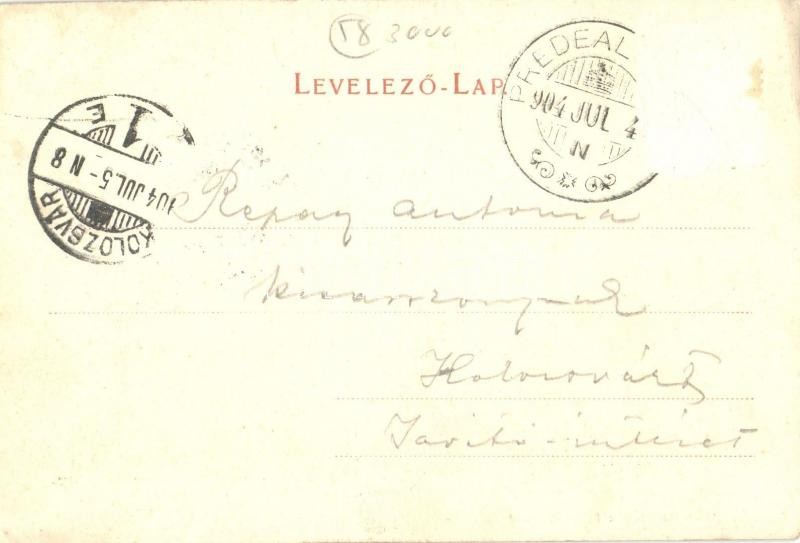 T8 3000
LEVELEZŐ-LAP.
PREDEAL
904 JUL 4
N
KOLOZSVÁR
904 JUL 5 - N 8
1 E
Repay Antonia
kisasszonynak
Kolozsvárt
Javitó-intézet